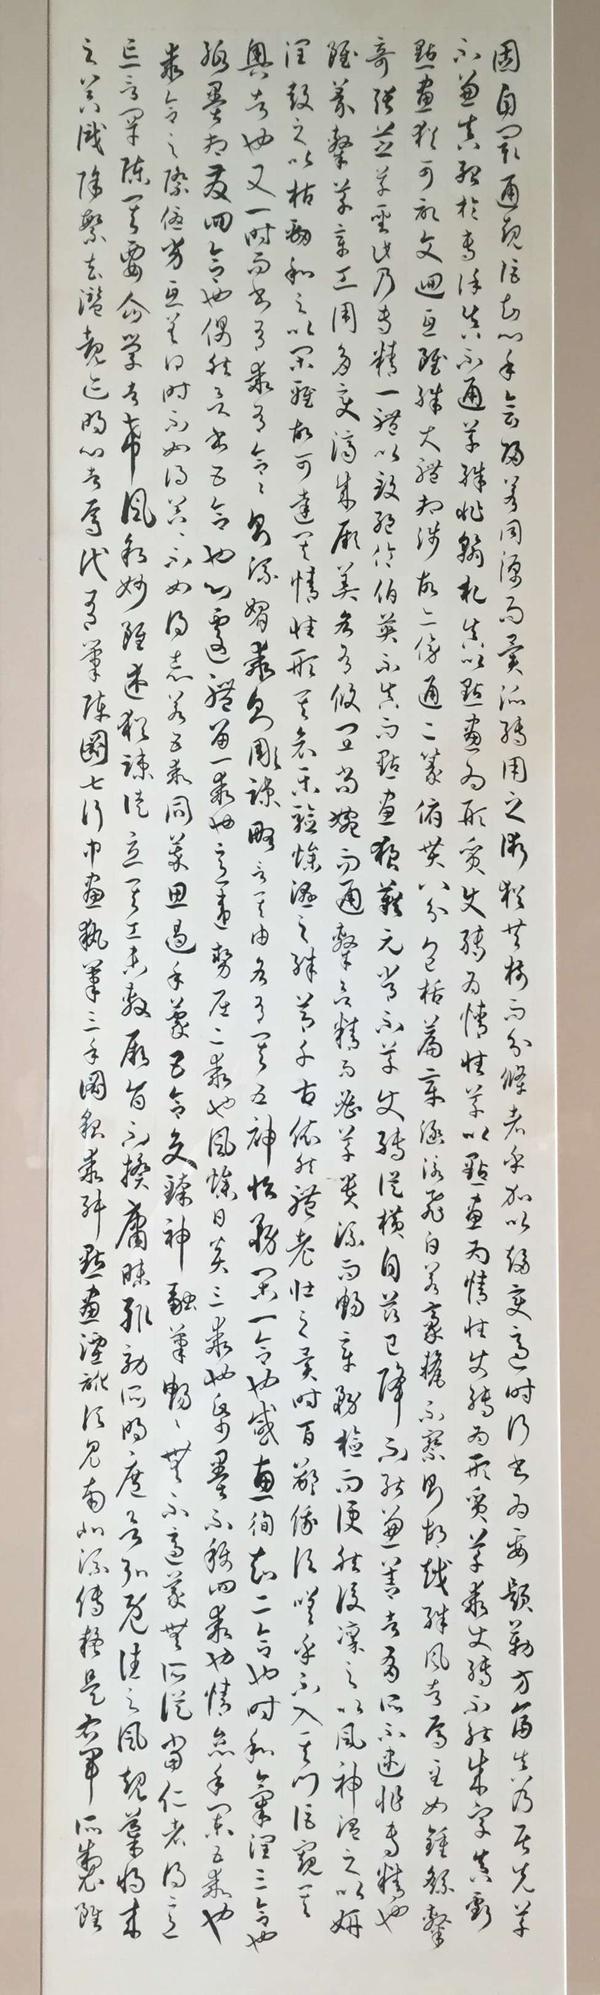 固自閡通規詎知心手會歸若同源而異派轉用之術猶共樹而分條者乎加以趨變適時行書為要題勒方畐真乃居先草
不兼真殆於專謹真不通草殊非翰札真以點畫為形質使轉為情性草以點畫為情性使轉為形質草乖使轉不能成字真虧
點畫猶可記文迴互雖殊大體相涉故亦傍通二篆俯貫八分包括篇章涵泳飛白若毫釐不察則胡越殊風者焉至如鍾繇隸
奇張芝草聖此乃專精一體以致絕倫伯英不真而點畫狼藉元常不草使轉縱橫自茲已降不能兼善者有所不逮非專精也
雖篆隸草章工用多變濟成厥美各有攸宜篆尚婉而通隸欲精而密草貴流而暢章務檢而便然後凜之以風神溫之以妍
潤鼓之以枯勁和之以閑雅故可達其情性形其哀樂驗燥濕之殊節千古依然體老壯之異時百齡俄頃嗟乎不入其門詎窺其
奧者也又一時而書有乖有合合則流媚乖則彫疎略言其由各有其五神怡務閑一合也感惠徇知二合也時和氣潤三合也
紙墨相發四合也偶然欲書五合也心遽體留一乖也意違勢屈二乖也風燥日炎三乖也紙墨不稱四乖也情怠手闌五乖也
乖合之際優劣互差得時不如得器得器不如得志若五乖同萃思遏手蒙五合交臻神融筆暢暢無不適蒙無所從當仁者得意
忘言罕陳其要企學者希風敘妙雖述猶疎徒立其工未敷厥旨不揆庸昧輒效所明庶欲弘既往之風規導將來
之器識除繁去濫覩迹明心者焉代有筆陣圖七行中畫執筆三手圖貌乖舛點畫湮訛頃見南北流傳疑是右軍所製雖